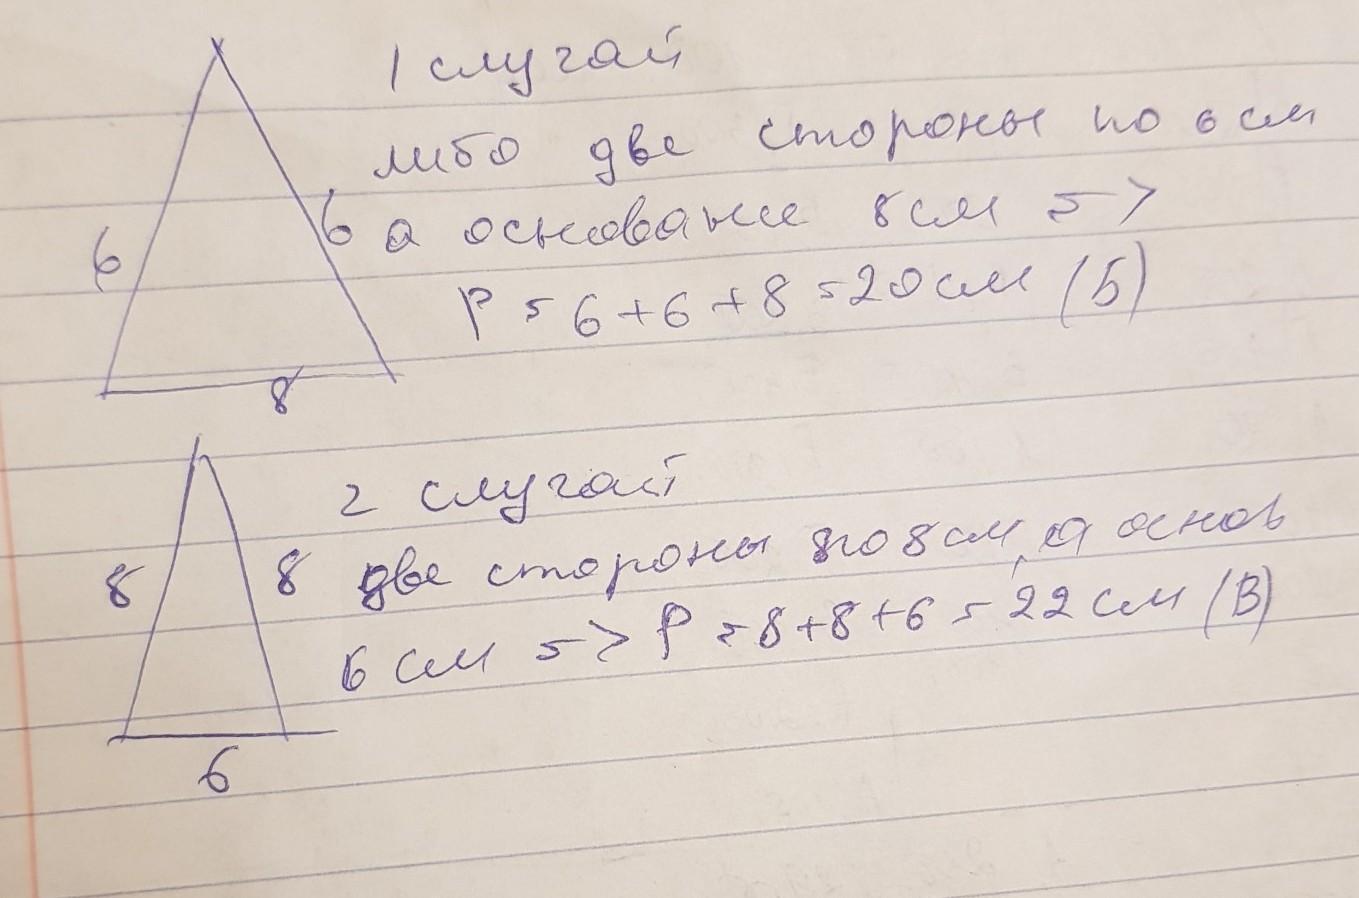 1 случай
либо две стороны по 6 см
6
6
а основание 8 см =>
P = 6 + 6 + 8 = 20 см (Б)
8
2 случай
8
8
две стороны по 8 см, а основ
6 см => P = 8 + 8 + 6 = 22 см (В)
6